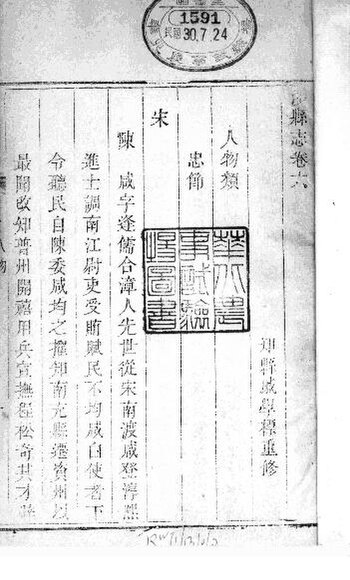 1591
民國 30.7.24
縣志卷
知縣戚學標重修
人物類
忠節
華北農
事試驗
場圖書
宋
陳 咸字逢儒合漳人先世從宋南渡咸登淳熙
進士調南江尉吏受賄賦民不均咸白使者下
令聽民自陳委咸均之擢知南充縣遷資州以
最聞改知普州開禧用兵宣撫程松奇其才